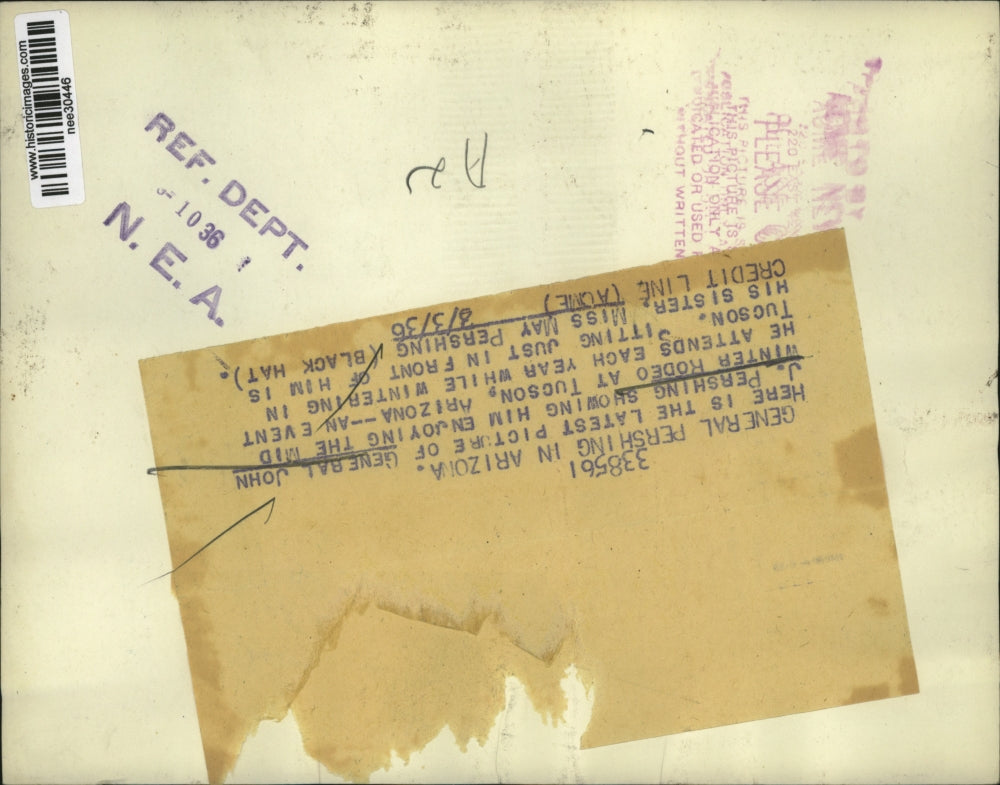 www.historicimages.com
nee30446
REF. DEPT.
10 36
N. E. A.
A2
PLEASE
THIS PICTURE IS
PUBLICATION ONLY
OR USED
WITHOUT WRITTEN
338561
GENERAL PERSHING IN ARIZONA.
HERE IS THE LATEST PICTURE OF GENERAL JOHN
J. PERSHING SHOWING HIM ENJOYING THE MID
WINTER RODEO AT TUCSON, ARIZONA--AN EVENT
HE ATTENDS EACH YEAR WHILE WINTERING IN
TUCSON. SITTING JUST IN FRONT OF HIM IS
HIS SISTER, MISS MAY PERSHING (BLACK HAT).
CREDIT LINE (ACME) 3/3/36